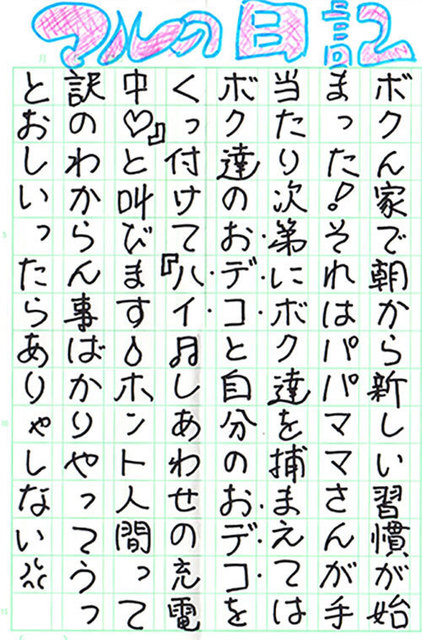 マルの日記
ボクん家で朝から新しい習慣が始
まった!それはパパママさんが手
当たり次第にボク達を捕まえては
ボク達のおデコと自分のおデコを
くっ付けて『ハイ♫しあわせの充電
中♡』と叫びます💧ホント人間って
訳のわからん事ばかりやってうっ
とおしいったらありゃしない💢